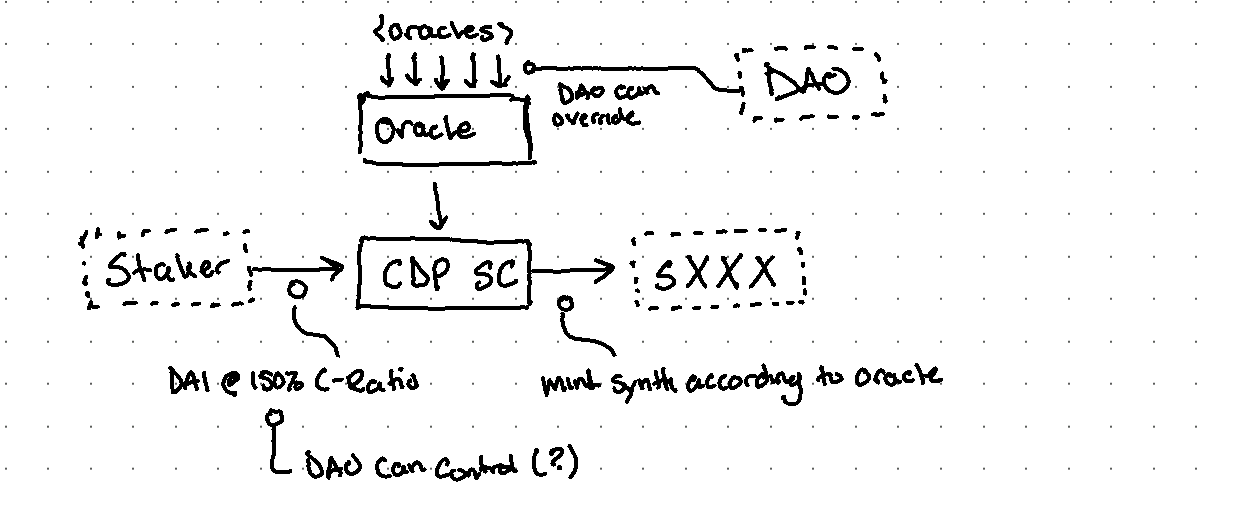 <oracles>
DAO
DAO can
override
Oracle
Staker
CDP SC
sXXX
DAI @ 150% C-Ratio
mint synth according to oracle
DAO can control (?)